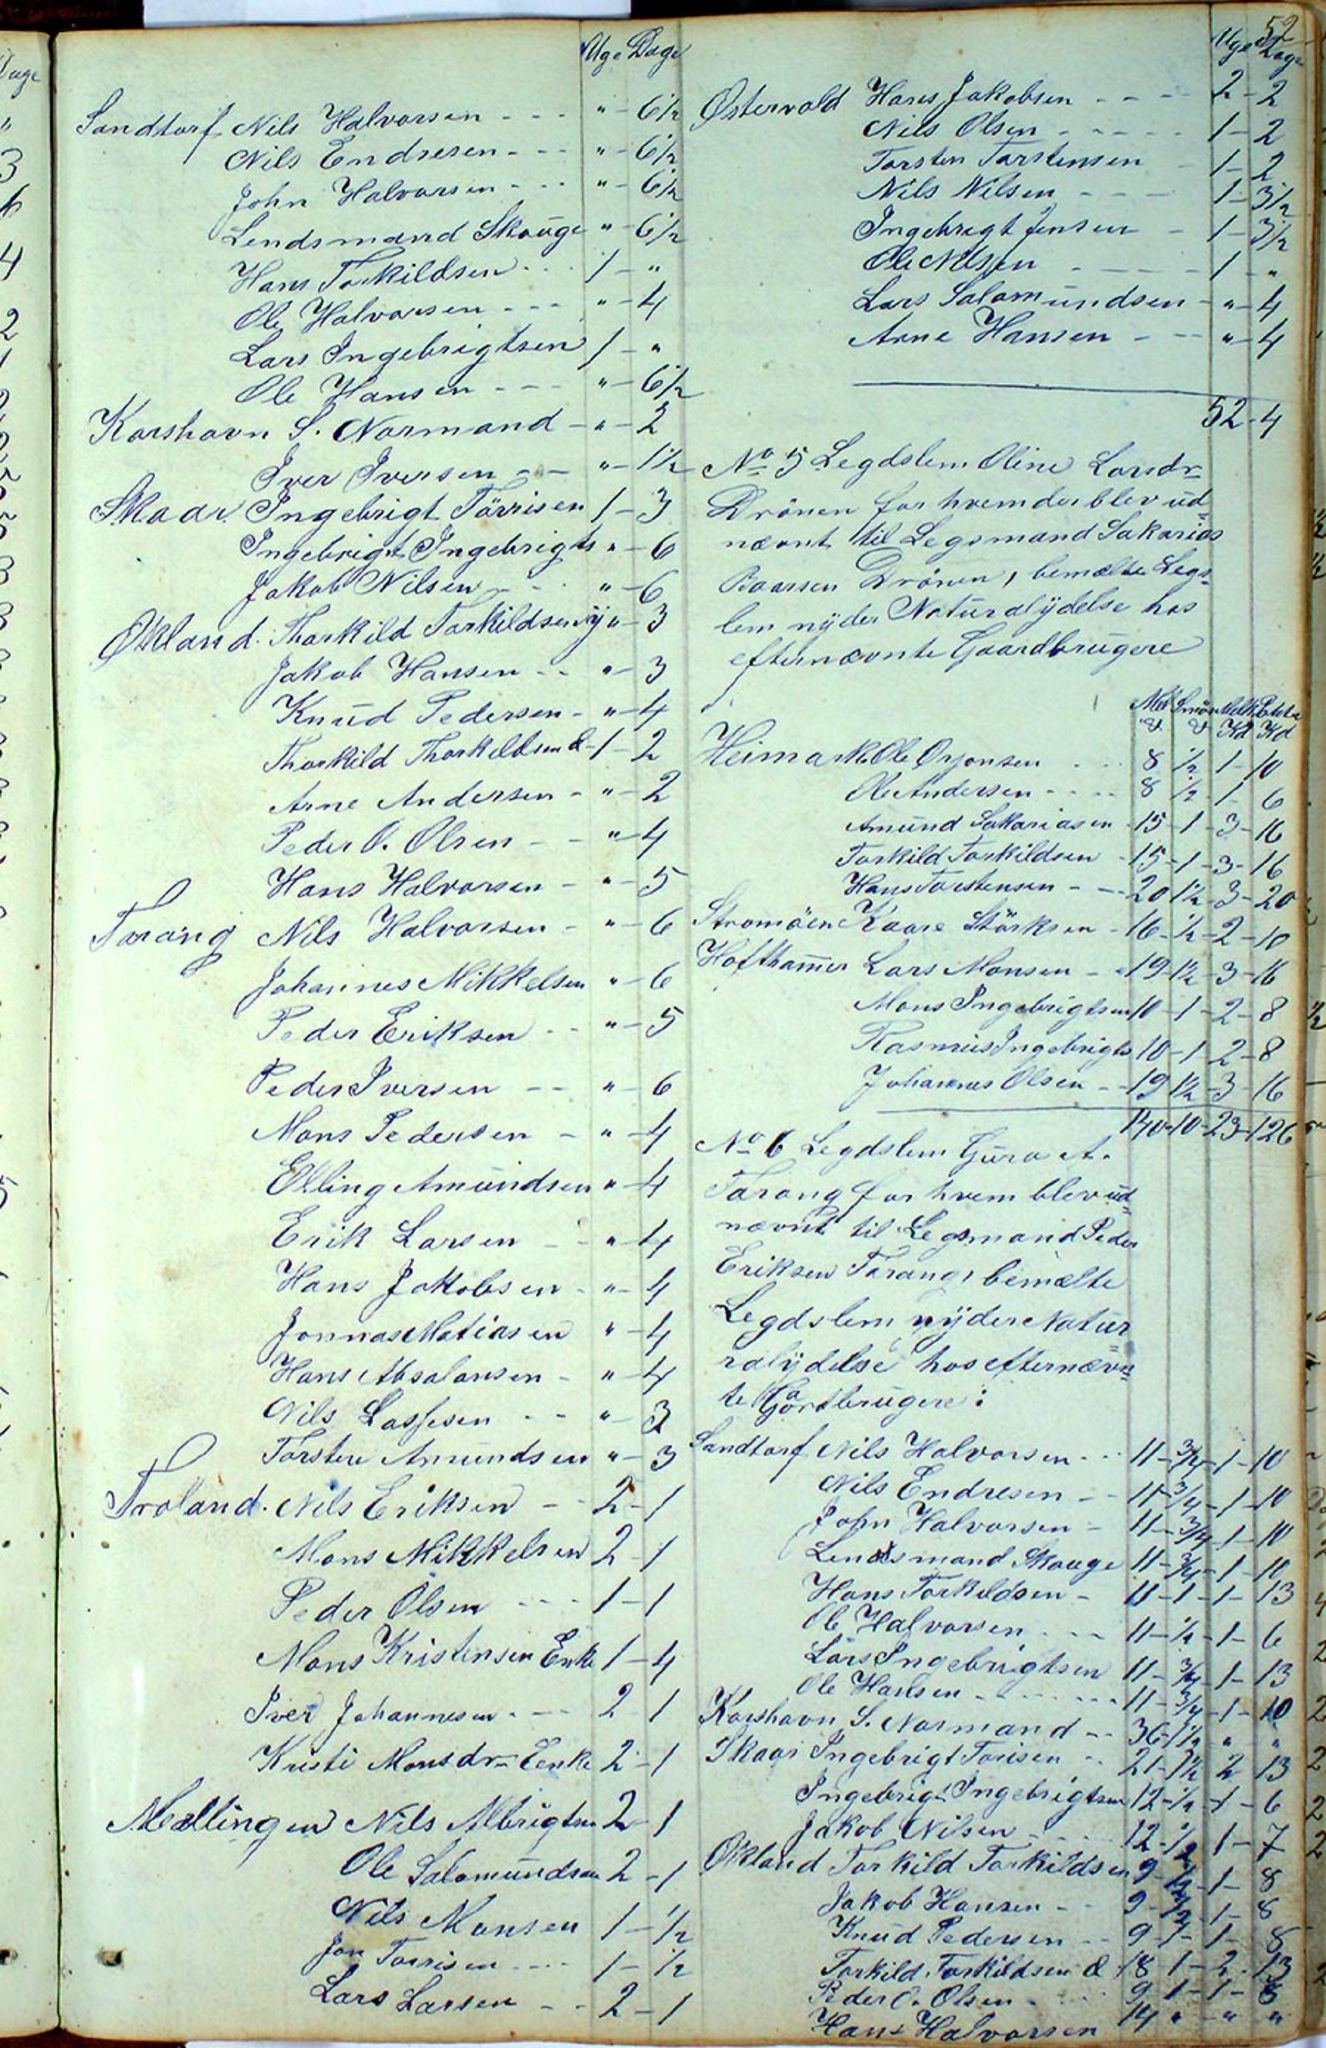 52
Uge Dage
Sandtorf Nils Halvorsen - - - " - 6 1/2
Nils Endresen - - - " - 6 1/2
John Halvorsen - - - " - 6 1/2
Lendsmand Skauge " - 6 1/2
Hans Torkildsen - - - 1 - "
Ole Halvorsen - - - " - 4
Lars Ingebrigtsen 1 - "
Ole Hansen - - - " - 6 1/2
Korshavn S. Normand - " - 2
Iver Iversen - - " - 1 1/2
Skaar Ingebrigt Törrisen 1 - 3
Ingebrigt Ingebrigts " - 6
Jakob Nilsen - - " - 6
Økland. Thorkild Torkildsen y " - 3
Jakob Hansen - - " - 3
Knud Pedersen - " - 4
Thorkild Thorkildsen d - 1 - 2
Arne Andersen - " - 2
Peder O. Olsen - - " - 4
Hans Halvorsen - " - 5
Tarang Nils Halvorsen - " - 6
Johannes Mikkelsen " - 6
Peder Eriksen - - " - 5
Peder Iversen - - " - 6
Mons Pedersen - " - 4
Elling Amundsen " - 4
Erik Larsen - - " - 4
Hans Jakobsen - " - 4
Jonnas Matiasen " - 4
Hans Absalonsen - " - 4
Nils Lassesen - - " - 3
Torsten Amundsen " - 3
Troland. Nils Eriksen - - 2 - 1
Mons Mikkelsen 2 - 1
Peder Olsen - - - 1 - 1
Mons Kristensen Enke 1 - 4
Iver Johannesen - - - 2 - 1
Kristi Monsdr Eenke 2 - 1
Mællingen Nils Albrigtsen 2 - 1
Ole Salomundsen 2 - 1
Nils Monsen 1 - 1/2
Jon Torrisen - - - 1 - 1/2
Lars Larsen - - 2 - 1
Uge Dage
Østervold Hans Jakobsen - - - 2 - 2
Nils Olsen - - - - - 1 - 2
Torsten Torstensen - 1 - 2
Nils Nilsen - - - - 1 - 3 1/2
Ingebrigt Jensen - 1 - 3 1/2
Ole Nilsen - - - - 1 - "
Lars Salamundsen - " - 4
Arne Hansen - - - " - 4
52 - 4
No 5 Legdslem Oline Larsdr
Drönen for hvem der blev ud-
nævnt til Legsmand Sakarias
Roarsen Drönen, bemælte Legs-
lem nyder Naturalydelse hos
efternævnte Gaardbrugere
Mel Smör Melk
Kd Kd
Heimark Ole Orjonsen - - - 8 1/2 - 1 - 10
Ole Andersen - - - - 8 1/2 - 1 - 6
Amund Sakariasen - 15 - 1 - 3 - 16
Torkild Torkildsen - 15 - 1 - 3 - 16
Hans Torstensen - - - 20 1 1/2 - 3 - 20
Stromöen Kaare Störksen - 16 - 1/2 - 2 - 10
Hofthamer Lars Monsen - - 19 - 1 1/2 - 3 - 16
Mons Ingebrigtsen 10 - 1 - 2 - 8
Rasmus Ingebrigts 10 - 1 - 2 - 8
Johannes Olsen - - 19 1 1/2 - 3 - 16
140 - 10 - 23 - 126
No 6 Legdslem Guro A.
Tarang for hvem blev ud-
nævnt til Legsmand Peder
Eriksen Tarang, bemælte
Legdslem nyder Natur-
ralydelse hos efternævn-
te Gaardbrugere:
Sandtorf Nils Halvorsen - - - 11 - 3/4 - 1 - 10
Nils Endresen - - 11 - 3/4 - 1 - 10
John Halvorsen - 11 - 3/4 - 1 - 10
Lendsmand Skauge 11 - 3/4 - 1 - 10
Hans Torkildsen - 11 - 1 - 1 - 13
Ole Halvorsen - - - 11 - 1/2 - 1 - 6
Lars Ingebrigtsen 11 - 3/4 - 1 - 13
Ole Hansen - - - - - 11 - 3/4 - 1 - 10
Korshavn S. Normand - - 36 - 1 1/2 " "
Skaar Ingebrigt Torisen - - 21 - 1 1/2 2 - 13
Ingebrigt Ingebrigtsen 12 - 1/2 - 1 - 6
Jakob Nilsen - - - 12 - 1/2 1 - 7
Økland Torkild Torkildsen 9 - 1/2 - 1 - 8
Jakob Hansen - - 9 - 1/2 - 1 - 8
Knud Pedersen - - 9 - 1 - 1 - 8
Torkild Torkildsen d - 18 - 1 - 2 - 13
Peder O. Olsen - - - 9 - 1 - 1 - 8
Hans Halvorsen 14 " - " "